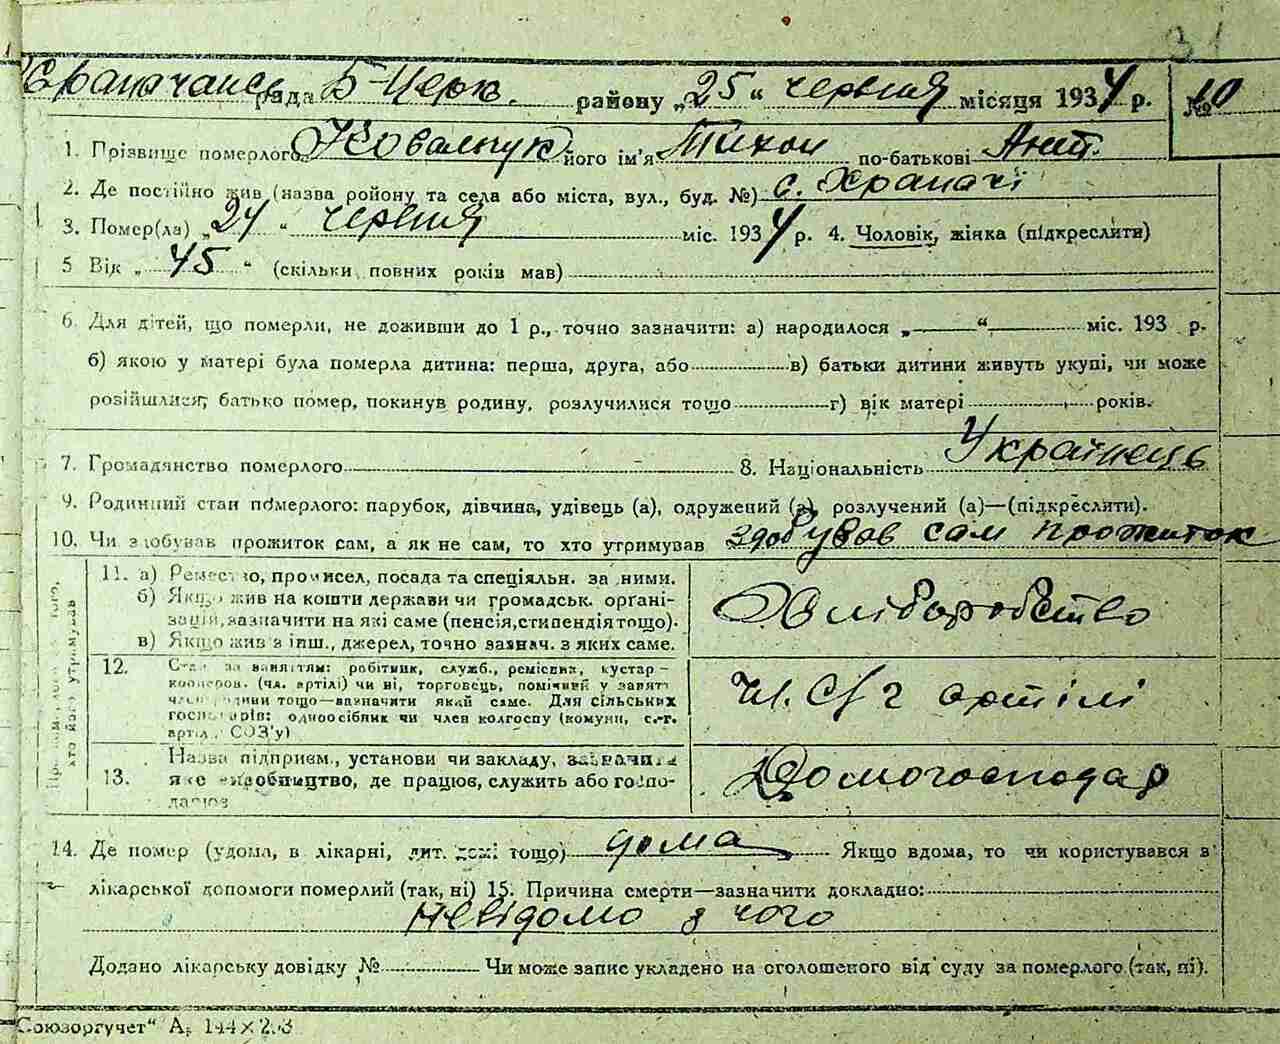 31
Храпачанськ рада Б-Церк. району „25“ червня місяця 1934 р. № 10
1. Прізвище померлого Ковальчук його ім'я Тихон по-батькові Ант.
2. Де постійно жив (назва ройону та села або міста, вул., буд. №) с. Храпачі
3. Помер(ла) „24“ червня міс. 1934 р. 4. Чоловік, жінка (підкреслити)
5 Вік „45“ (скільки повних років мав)
6. Для дітей, що померли, не доживши до 1 р., точно зазначити: а) народилося „—“ міс. 193 р.
б) якою у матері була померла дитина: перша, друга, або в) батьки дитини живуть укупі, чи може
розійшлися; батько помер, покинув родину, розлучилися тощо г) вік матері років.
7. Громадянство померлого 8. Національність Українець
9. Родинний стан померлого: парубок, дівчина, удівець (а), одружений (а), розлучений (а)—(підкреслити).
10. Чи здобував прожиток сам, а як не сам, то хто утримував здобував сам прожиток
11. а) Ремество, промисел, посада та спеціяльн. за ними.
б) Якщо жив на кошти держави чи громадськ. органі-
зацій, зазначити на які саме (пенсія, стипендія тощо).
в) Якщо жив з інш., джерел, точно зазнач. з яких саме.
Хліборобство
12. Стан за заняттям: робітник, служб., ремісник, кустар-
кооперов. (чл. артілі) чи ні, торговець, помічний у занятті
член родини тощо—зазначити який саме. Для сільських
господарів: одноосібник чи член колгоспу (комуни, с.-г.
артілі, СОЗ'у)
Чл. С/г артілі
13. Назва підприєм., установи чи закладу, зазначити
яке виробництво, де працює, служить або госпо-
дарює
Домогосподар
14. Де помер (удома, в лікарні, дит. домі тощо) дома Якщо вдома, то чи користувався в
лікарської допомоги померлий (так, ні) 15. Причина смерти—зазначити докладно:
невідомо з чого
Додано лікарську довідку № Чи може запис укладено на оголошеного від суду за померлого (так, ні).
Союзоргучет“ А₅ 144×203